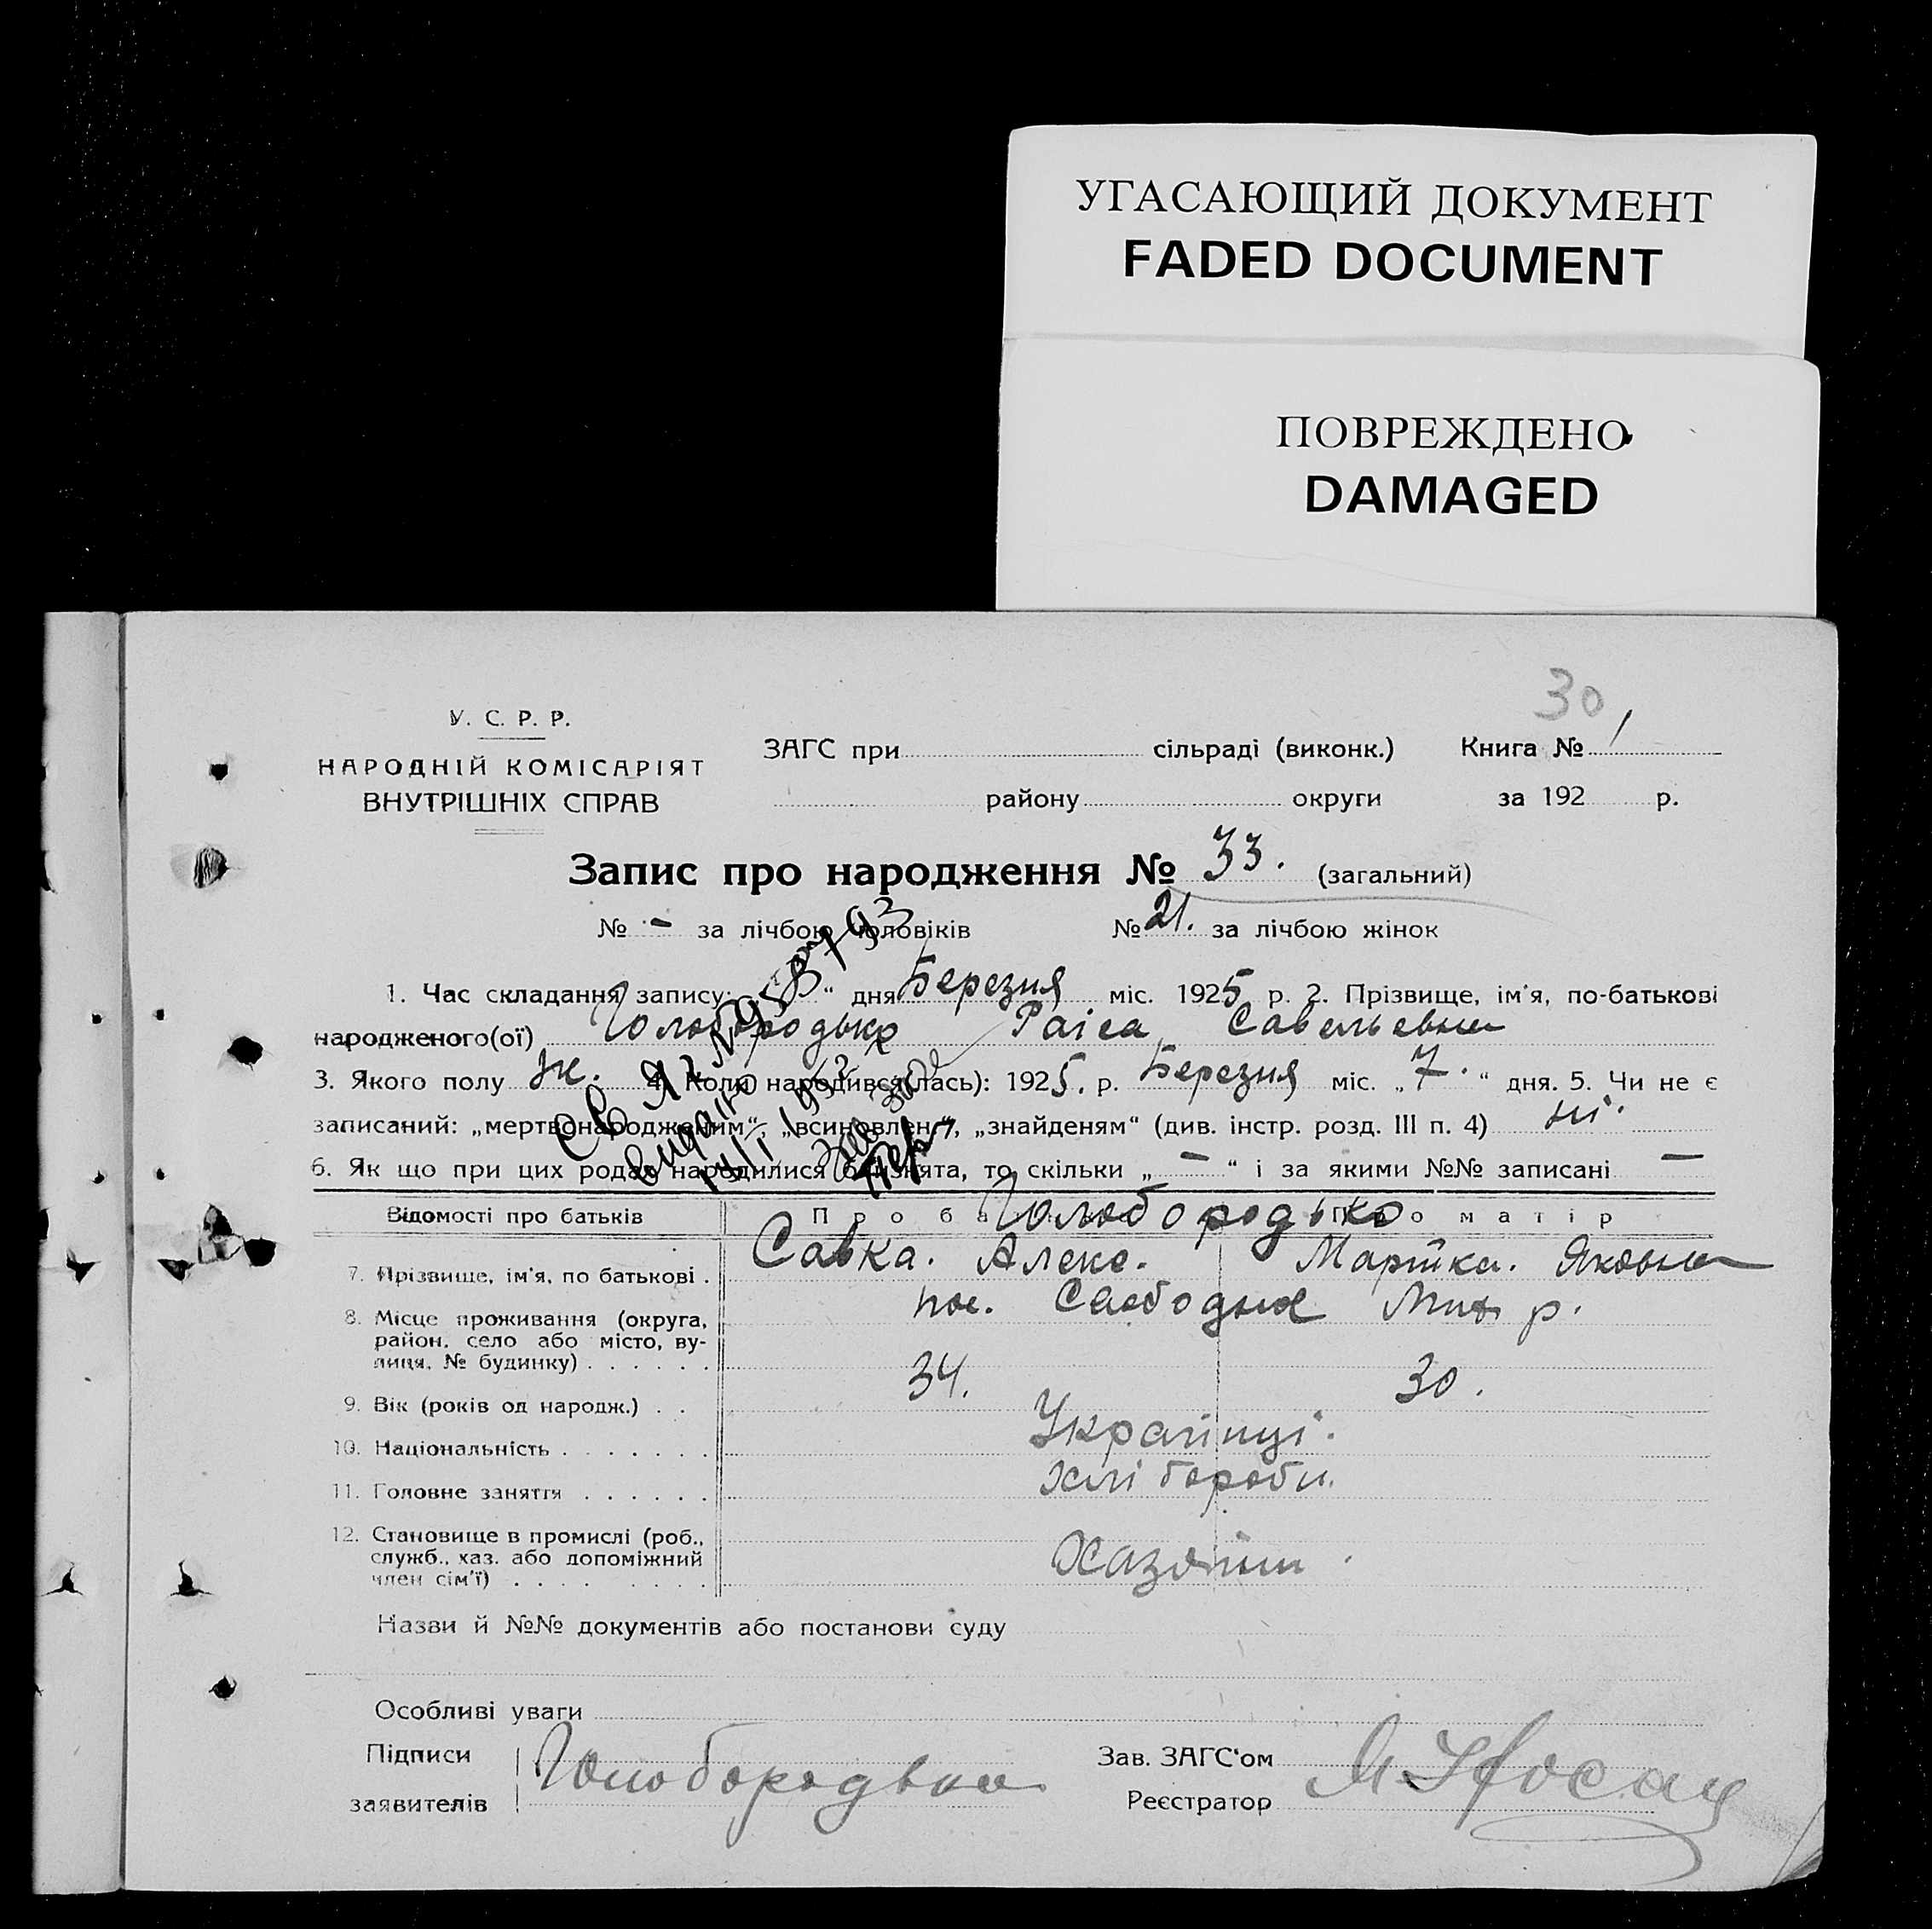 УГАСАЮЩИЙ ДОКУМЕНТ
FADED DOCUMENT
ПОВРЕЖДЕНО
DAMAGED
30
У. С. Р. Р.
НАРОДНІЙ КОМІСАРІЯТ
ВНУТРІШНІХ СПРАВ
ЗАГС при сільраді (виконк.) Книга № 1
району округи за 192 р.
Запис про народження № 33. (загальний)
№ - за лічбою чоловіків № 21. за лічбою жінок
1. Час складання запису: „ “ дня Березня міс. 1925 р. 2. Прізвище, ім'я, по-батькові
народженого(ої) Голобородько Раіса Савельевна
3. Якого полу ж. 4. Коли народився(лась): 1925. р. Березня міс. „7.“ дня. 5. Чи не є
записаний: „мертвонародженим“, „всиновлен.“, „знайденям“ (див. інстр. розд. III п. 4) ні.
6. Як що при цих родах народилися близнята, то скільки „—“ і за якими №№ записані —
Св ЯГ №
видано
1953
Відомості про батьків Про батька Про матір
Голобородько
7. Прізвище, ім'я, по батькові . Савка. Алекс. Марійка. Яковна
8. Місце проживання (округа, район, село або місто, вулиця, № будинку) . . . . . . пос. р.
9. Вік (років од народж.) . . 34. 30.
10. Національність . . . . . . . Українці.
11. Головне заняття . . . . . . Хлібороби.
12. Становище в промислі (роб., служб., хаз. або допоміжний член сім'ї) . . . . . . . . Хазяїни.
Назви й №№ документів або постанови суду
Особливі уваги
Підписи
заявителів Голобородько
Зав. ЗАГС'ом
Реєстратор